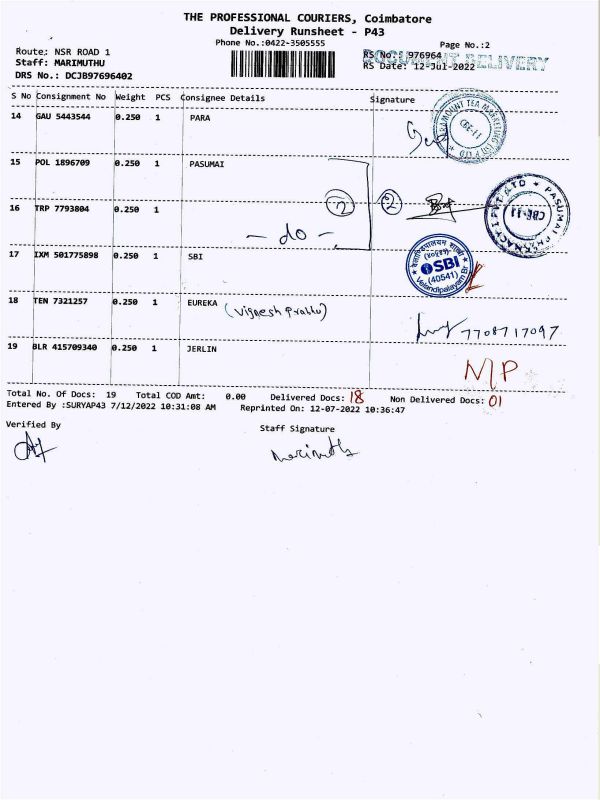 THE PROFESSIONAL COURIERS, Coimbatore
Delivery Runsheet - P43
Phone No.:0422-3505555
Page No.:2
Route: NSR ROAD 1
RS No.: 976964
DOCUMENT DELIVERY
Staff: MARIMUTHU
RS Date: 12-Jul-2022
DRS No.: DCJB97696402
S No Consignment No Weight PCS Consignee Details Signature
14 GAU 5443544 0.250 1 PARA
PARAMOUNT TEA MARKETING
CBE-11
15 POL 1896709 0.250 1 PASUMAI
2 2
PASUMAI PHARMACY I PVT LTD
CBE-11
16 TRP 7793804 0.250 1
- do -
17 IXM 501775898 0.250 1 SBI
SBI
(40541)
18 TEN 7321257 0.250 1 EUREKA (Vignesh Prabhu)
7708717097
19 BLR 415709340 0.250 1 JERLIN
NP
Total No. Of Docs: 19 Total COD Amt: 0.00 Delivered Docs: 18 Non Delivered Docs: 01
Entered By :SURYAP43 7/12/2022 10:31:08 AM Reprinted On: 12-07-2022 10:36:47
Verified By
Staff Signature
Marimuthu